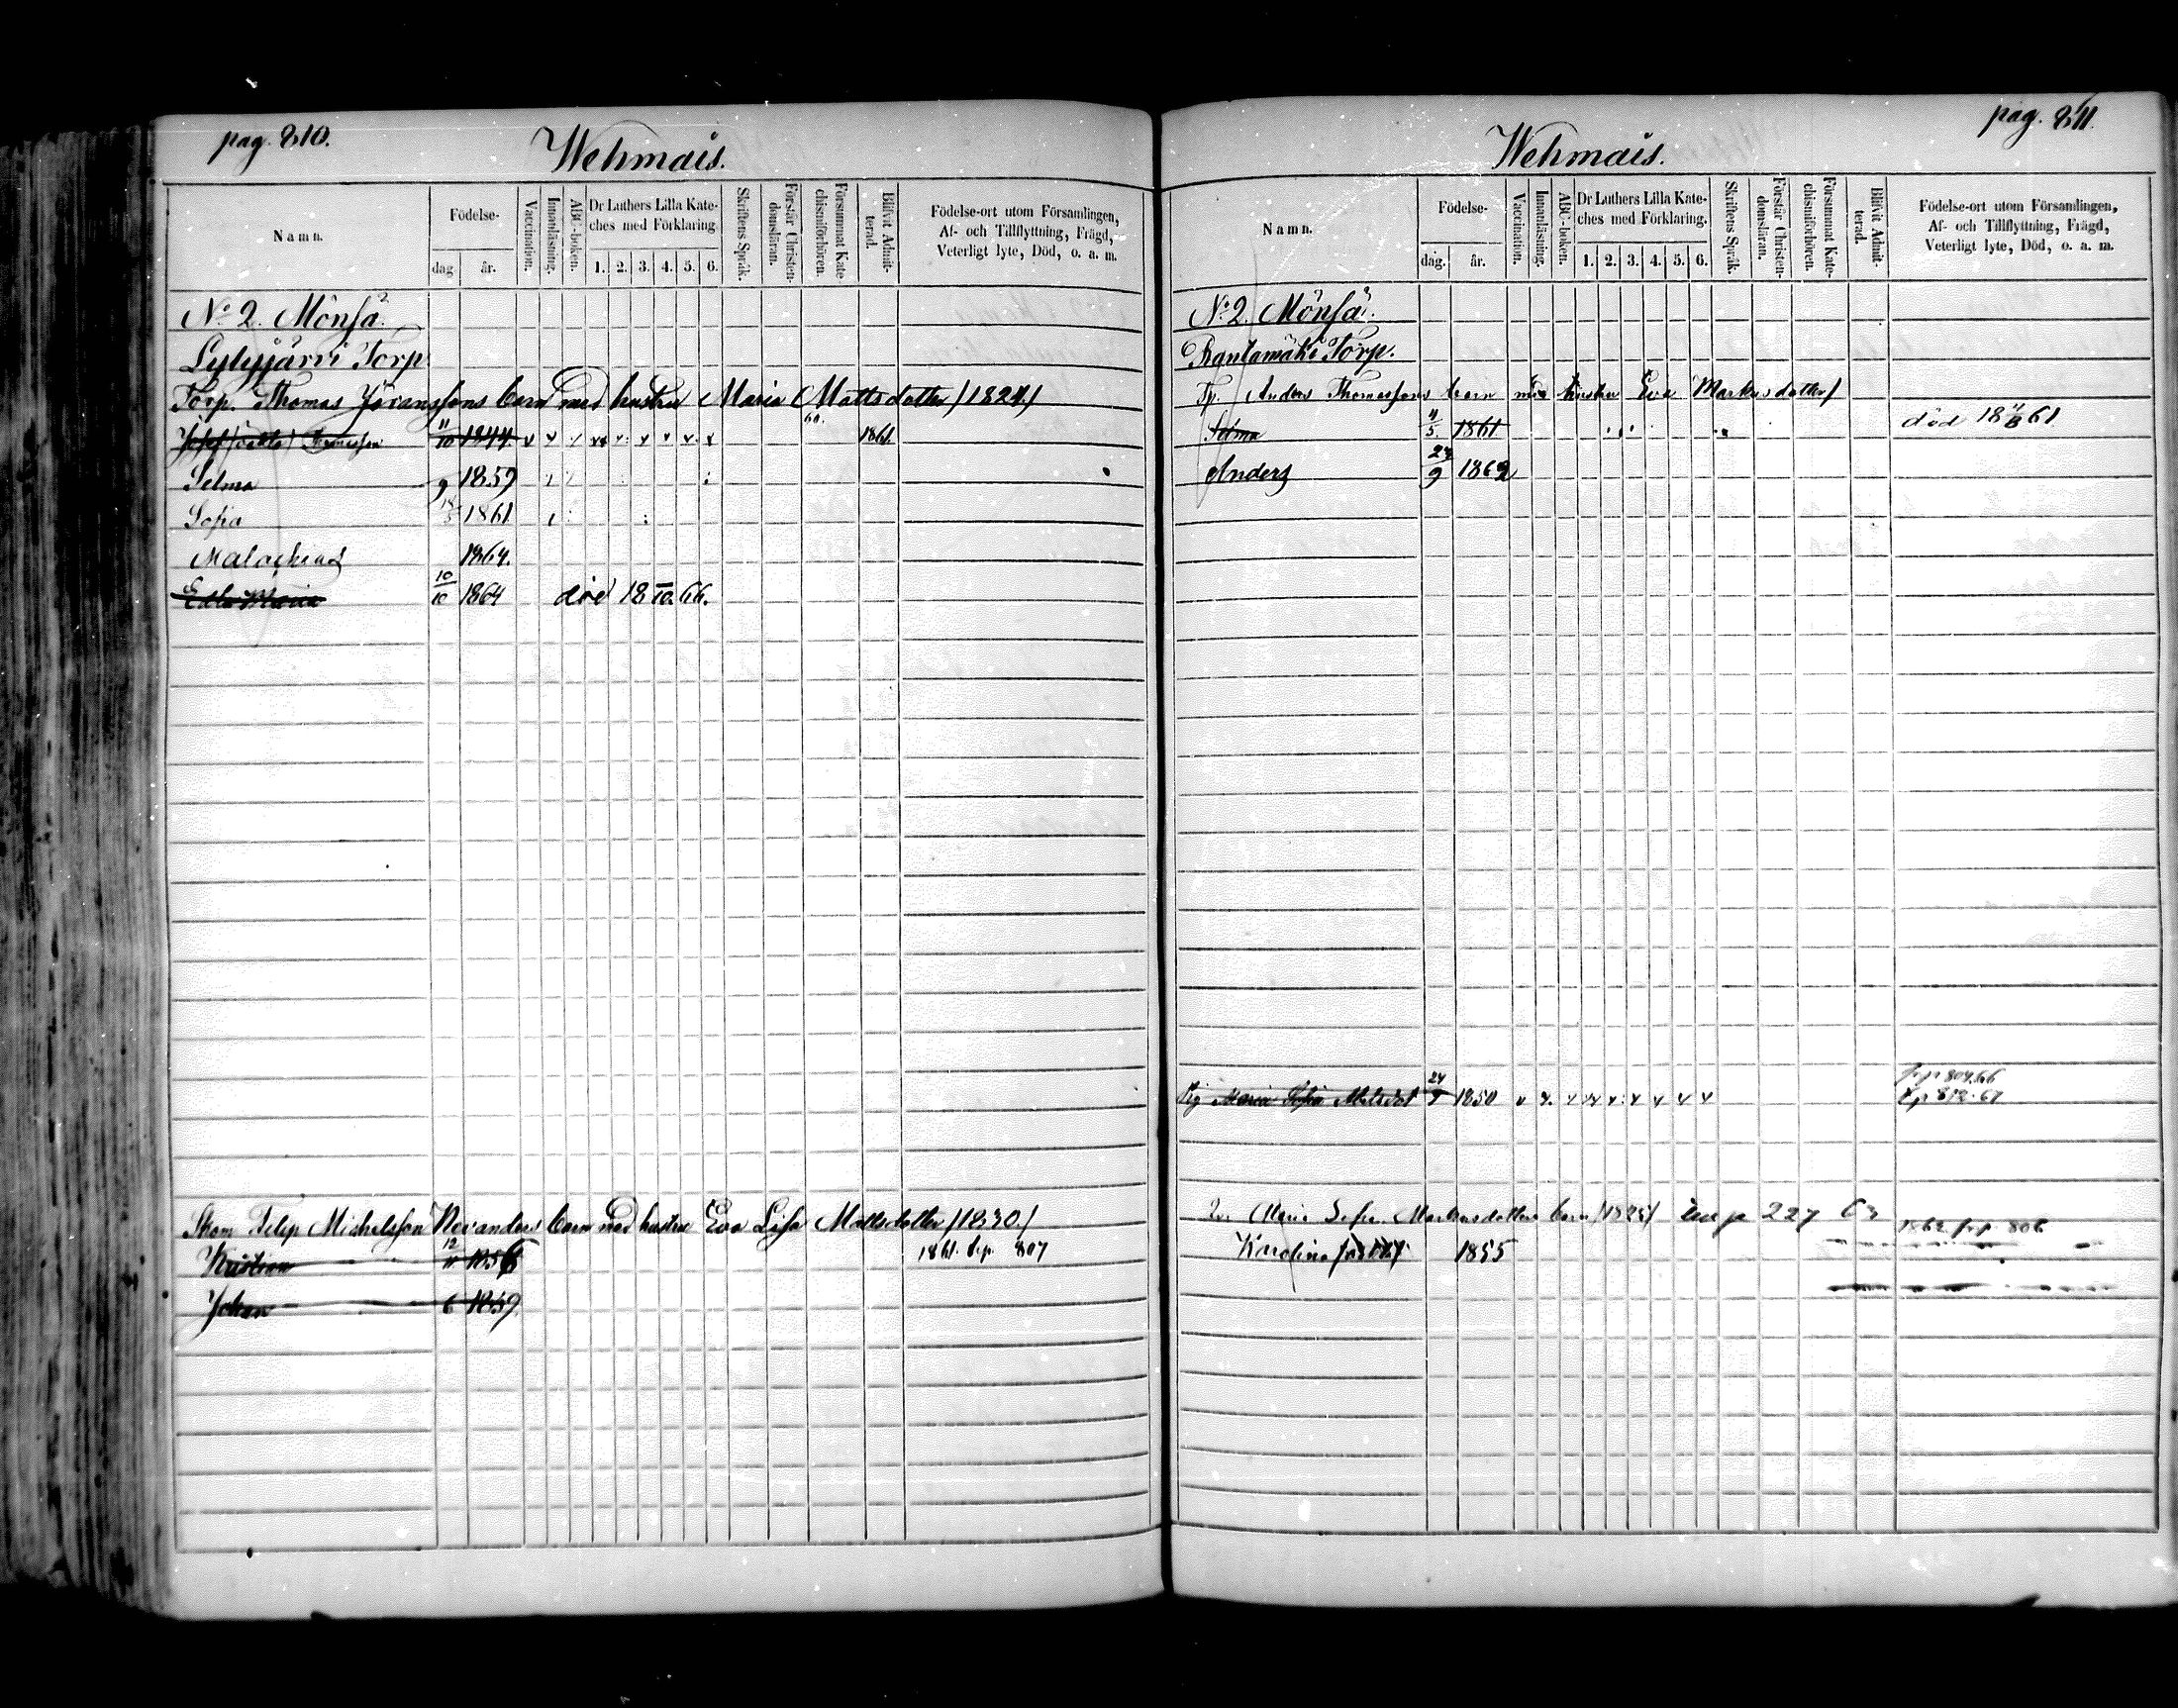 pag. 810.
Wehmais.
Namn.
Födelse-
dag
år.
Vaccination.
Innanläsning.
ABC-boken.
Dr Luthers Lilla Kate-
ches med Förklaring
1. 2. 3. 4. 5. 6.
Skriftens Språk.
Förstår Christen-
domsläran.
Försummat Kate-
chismiförhören.
Blifvit Admit-
terad.
Födelse-ort utom Församlingen,
Af- och Tillflyttning, Frägd,
Veterligt lyte, Död, o. a. m.
No 2. Mönsä.
Lylyjärvi Torp
Torp. Thomas Göranssons barn med hustru Maria Mattsdotter (1824)
11/10 1844 60. 1861.
Selma 9 1859
Sofia 18/5 1861
Malachias 1864.
Edla Maria 10/10 1864 död 18 10. 66.
Skom Filip Michelsson Nevanders barn med hustru Eva Lisa Mattsdotter (1830)
Kristian 12/11 1856 1861. p. 807
Johan 6 1859
pag. 811.
Wehmais.
Namn.
Födelse-
dag.
år.
Vaccination.
Innanläsning.
ABC-boken.
Dr Luthers Lilla Kate-
ches med Förklaring.
1. 2. 3. 4. 5. 6.
Skriftens Språk.
Förstår Christen-
domsläran.
Försummat Kate-
chismiförhören.
Blifvit Admit-
terad.
Födelse-ort utom Församlingen,
Af- och Tillflyttning, Frägd,
Veterligt lyte, Död, o. a. m.
No 2. Mönsä.
Rantamäki Torp.
Tp. Anders Thomassons barn med hustru Eva Markusdotter
Selma 11/5. 1861 död 18 11/8 61
Anders 9 1862
frp 809.66
Pig Maria Sofia Matsdot 24 1850 tp 812. 67
Maria Markusdotters barn (1825) p 227
1862 frp 806
Karolina 1855